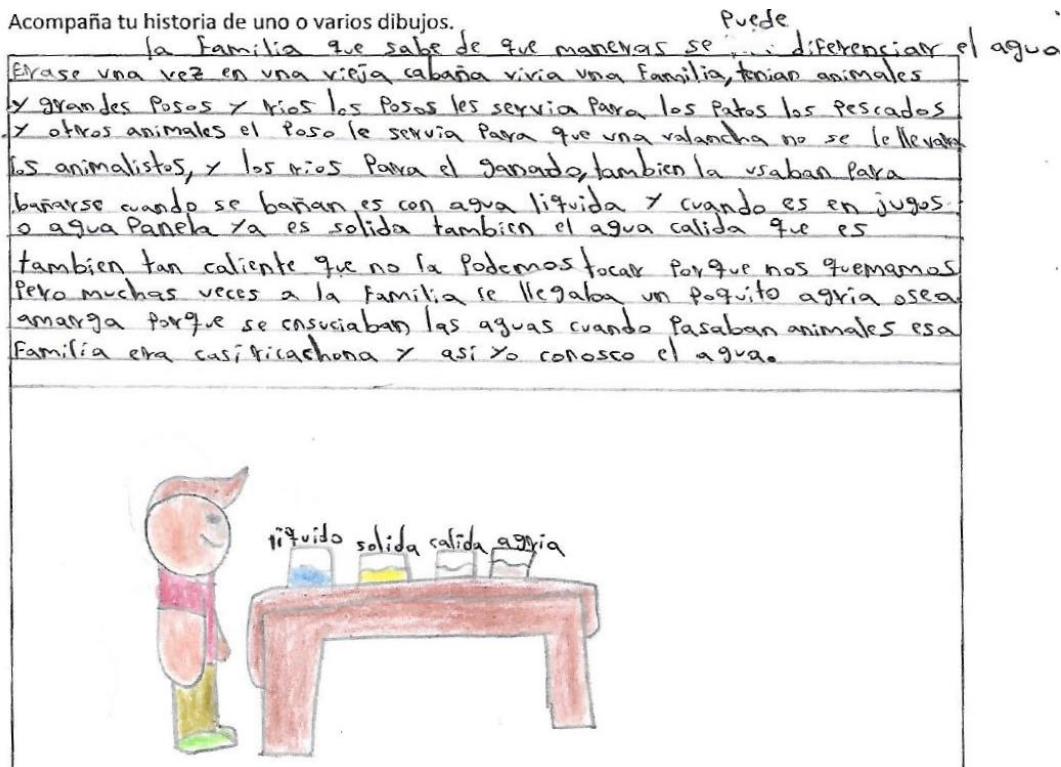 Acompaña tu historia de uno o varios dibujos.
puede
la familia que sabe de que maneras se ... diferenciar el agua
Erase una vez en una vieja cabaña vivia una familia, tenian animales
y grandes posos y rios los posos les servia para los patos los pescados
y otros animales el poso le servia para que una valancha no se le llevara
los animalistos, y los rios para el ganado, tambien la usaban para
bañarse cuando se bañan es con agua liquida y cuando es en jugos
o agua panela ya es solida tambien el agua calida que es
tambien tan caliente que no la podemos tocar porque nos quemamos
pero muchas veces a la familia le llegaba un poquito agria osea
amarga porque se ensuciaban las aguas cuando pasaban animales esa
familia era casi ricachona y asi yo conosco el agua.
liquido solida calida agria